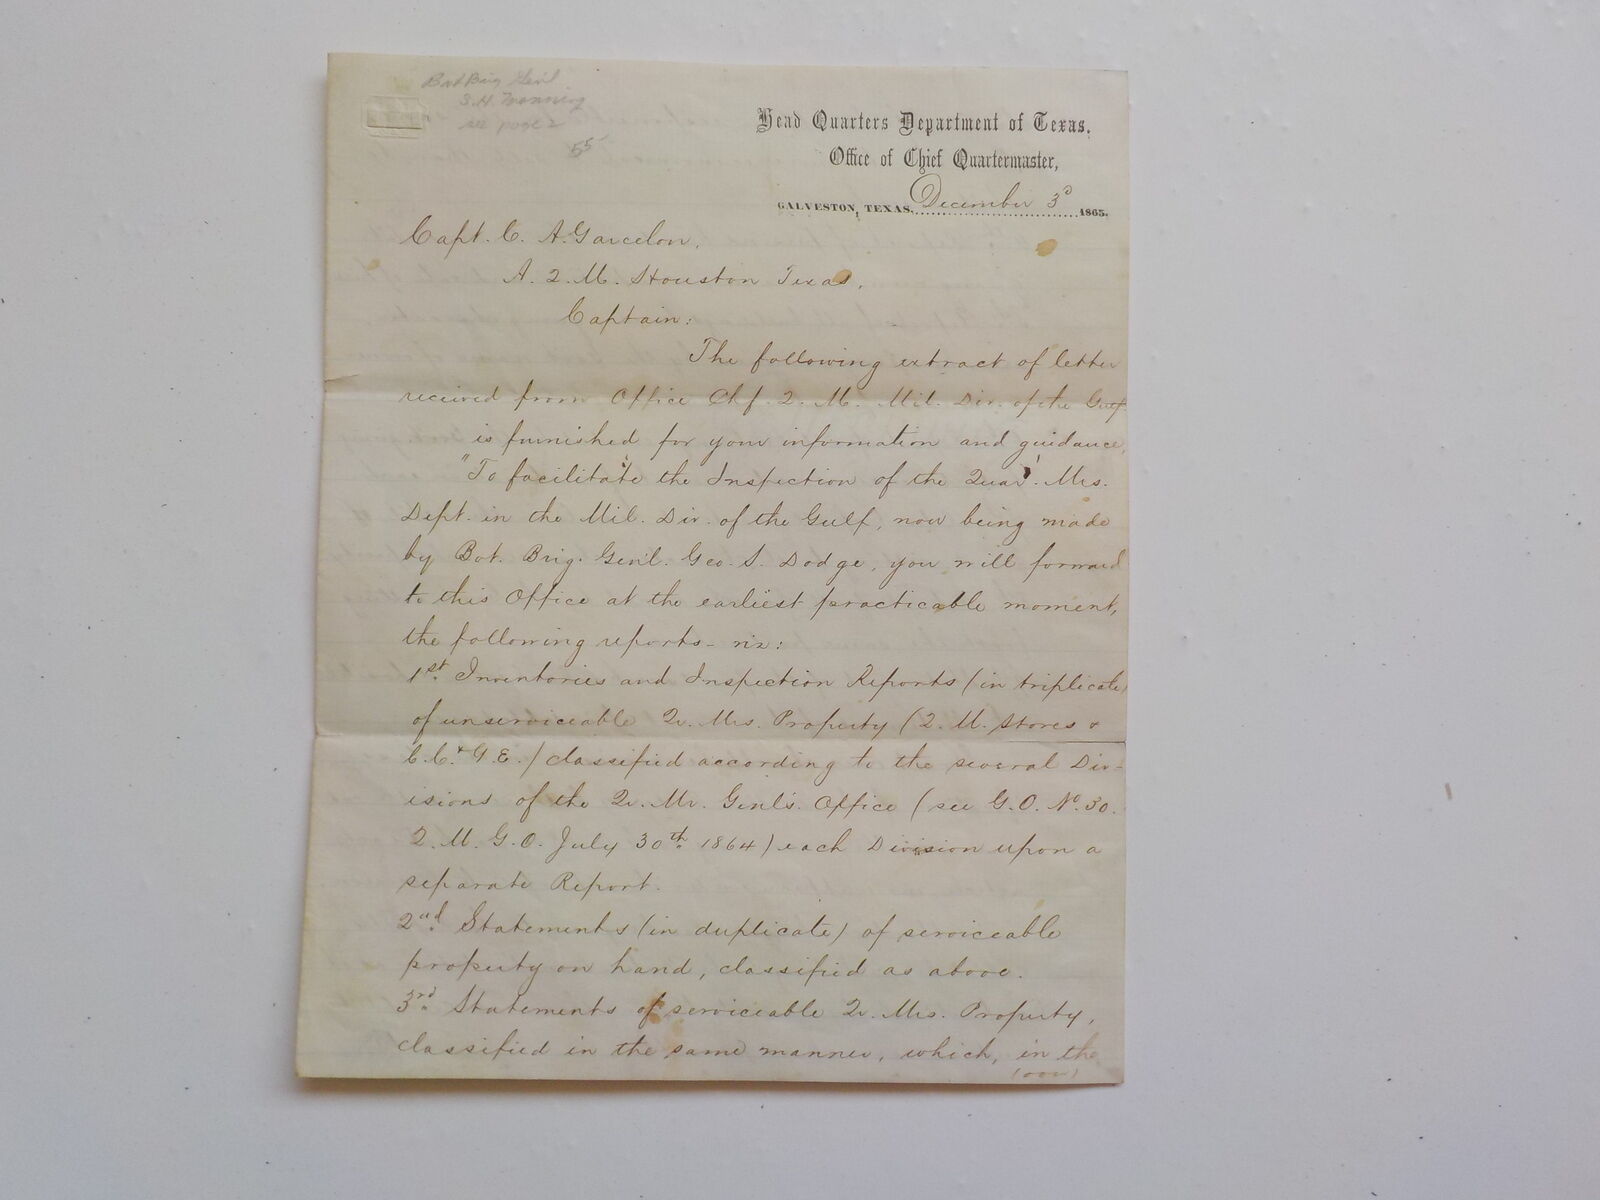 Bvt Brig Genl
S.H. Manning
see page 2
55
Head Quarters Department of Texas.
Office of Chief Quartermaster,
GALVESTON, TEXAS, December 3d 1865.
Capt. C. A. Garcelon,
A. Q. M. Houston Texas,
Captain:
The following extract of letter
received from Office Chf. Q. M. Mil. Div. of the Gulf
is furnished for your information and guidance,
"To facilitate the Inspection of the Quar. Mrs.
Dept. in the Mil. Div. of the Gulf, now being made
by Bvt. Brig. Gen'l. Geo. S. Dodge, you will forward
to this Office at the earliest practicable moment,
the following reports - viz:
1st. Inventories and Inspection Reports (in triplicate)
of unserviceable Qr. Mrs. Property (Q. M. Stores &
C.C. & G.E.) classified according to the several Div-
isions of the Qr. Mr. Genl's. Office (see G.O. No. 30.
Q. M. G. O. July 30th. 1864) each Division upon a
separate Report.
2nd. Statements (in duplicate) of serviceable
property on hand, classified as above.
3rd. Statements of serviceable Qr. Mrs. Property,
classified in the same manner, which, in the
(over)